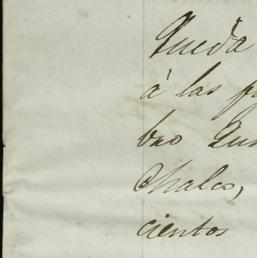 Queda
á las
bro
Chalco,
cientos